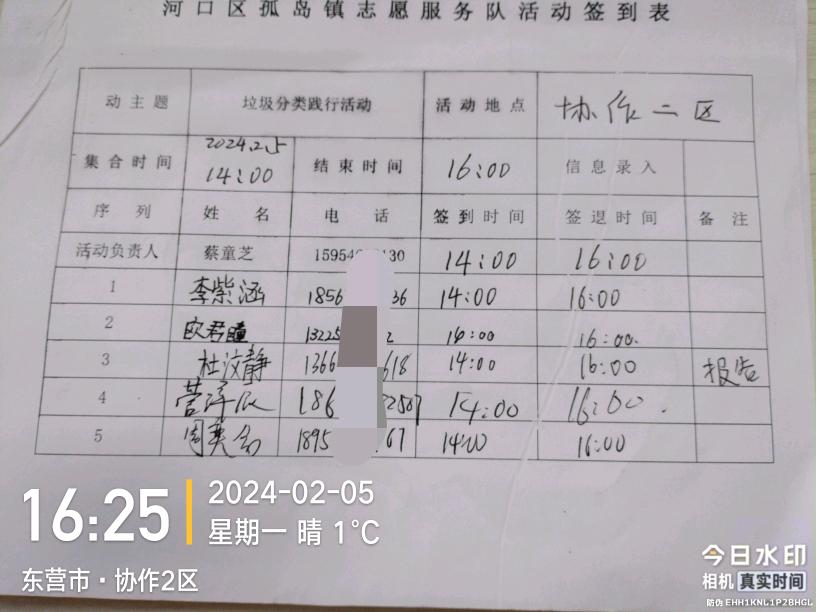 河口区孤岛镇志愿服务队活动签到表
动主题 垃圾分类践行活动 活动地点 协作二区
集合时间 2024.2.5 14:00 结束时间 16:00 信息录入
序列 姓名 电话 签到时间 签退时间 备注
活动负责人 蔡童芝 15954 130 14:00 16:00
1 李紫涵 1856 36 14:00 16:00
2 欧君瞳 13225 2 14:00 16:00.
3 杜汶静 1366 618 14:00 16:00 报告
4 186 14:00 16:00.
5 1895 67 16:00
16:25 2024-02-05
星期一 晴 1℃
东营市·协作2区
今日水印
相机 真实时间
防伪 EHH1KNL1P2BHGL